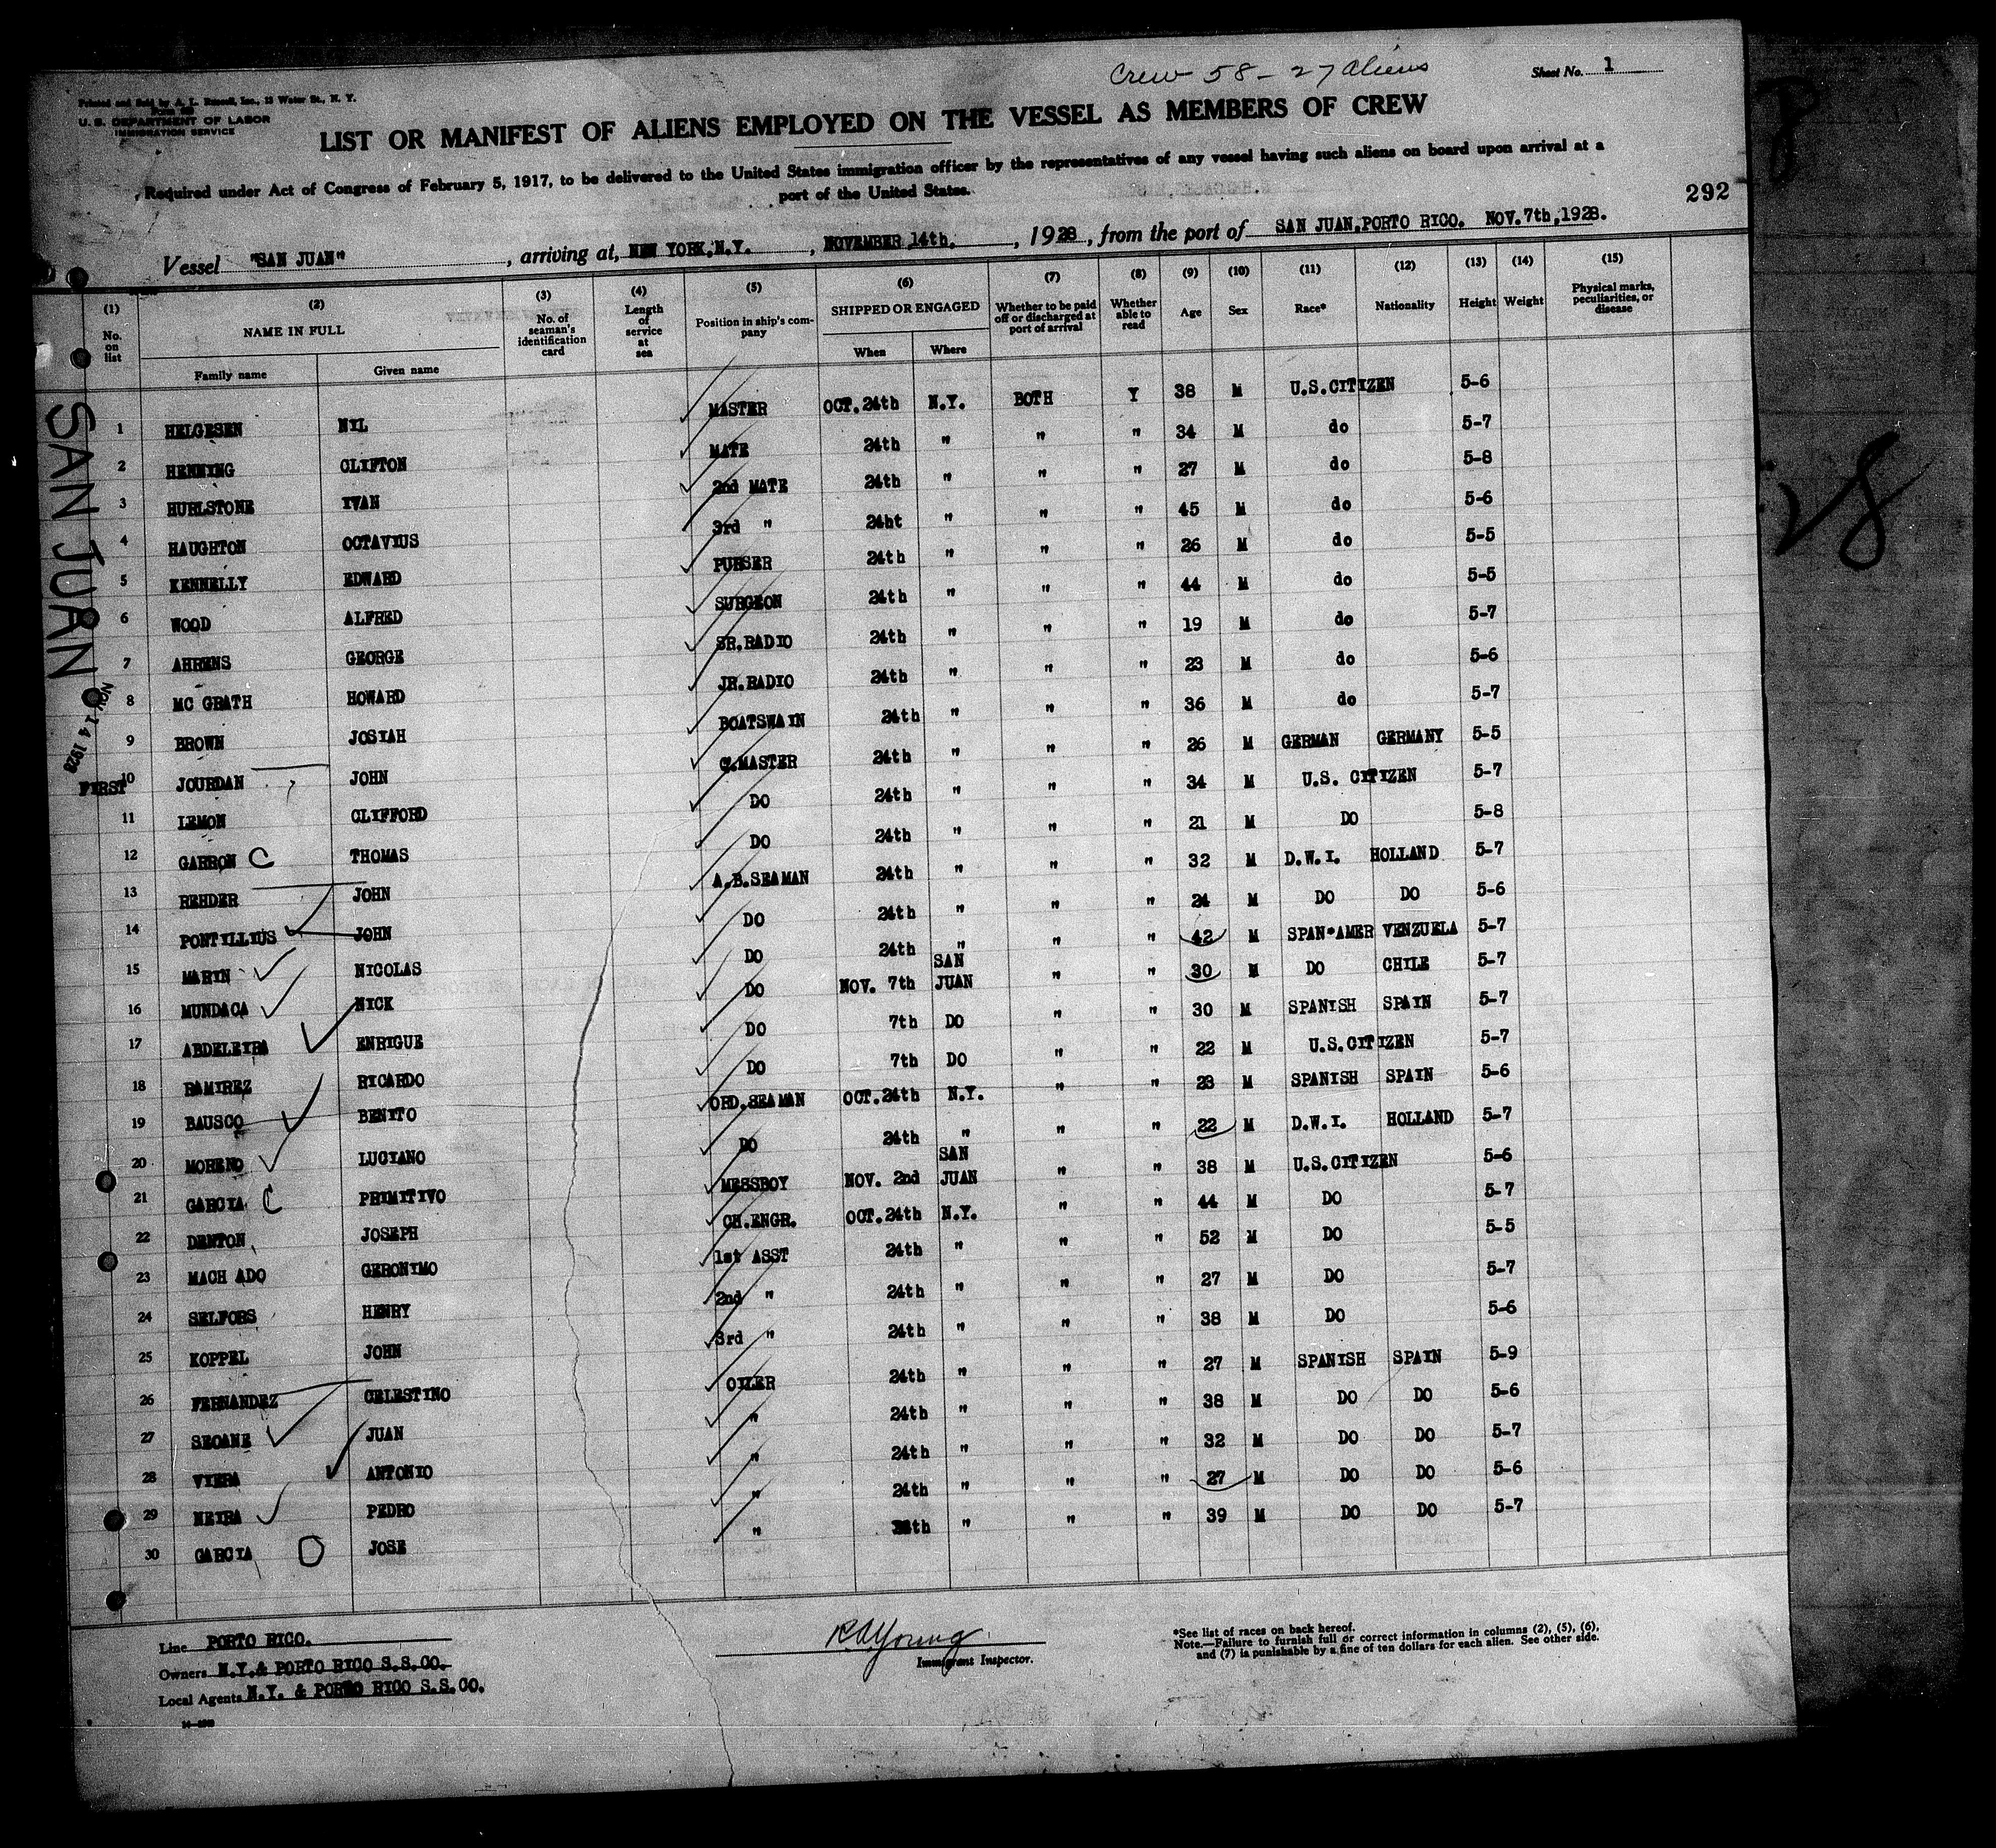 Crew 58 - 27 aliens
Sheet No. 1
Printed and Sold by A. L. Russell, Inc., 13 Water St., N. Y.
U. S. DEPARTMENT OF LABOR
IMMIGRATION SERVICE
LIST OR MANIFEST OF ALIENS EMPLOYED ON THE VESSEL AS MEMBERS OF CREW
Required under Act of Congress of February 5, 1917, to be delivered to the United States immigration officer by the representatives of any vessel having such aliens on board upon arrival at a
port of the United States.
292
Vessel "SAN JUAN", arriving at, NEW YORK,N.Y., NOVEMBER 14th., 1928, from the port of SAN JUAN,PORTO RICO. NOV.7th,1928.
(1) No. on list (2) NAME IN FULL Family name Given name (3) No. of seaman's identification card (4) Length of service at sea (5) Position in ship's company (6) SHIPPED OR ENGAGED When Where (7) Whether to be paid off or discharged at port of arrival (8) Whether able to read (9) Age (10) Sex (11) Race* (12) Nationality (13) Height (14) Weight (15) Physical marks, peculiarities, or disease
1 HELGESEN NIL MASTER OCT.24th N.Y. BOTH Y 38 M U.S.CITIZEN 5-6
2 HENNING CLIFTON MATE 24th " " " 34 M do 5-7
3 HURLSTONE IVAN 2nd MATE 24th " " " 27 M do 5-8
4 HAUGHTON OCTAVIUS 3rd " 24ht " " " 45 M do 5-6
5 KENNELLY EDWARD PURSER 24th " " " 26 M do 5-5
6 WOOD ALFRED SURGEON 24th " " " 44 M do 5-5
7 AHRENS GEORGE SR.RADIO 24th " " " 19 M do 5-7
8 MC GRATH HOWARD JR.RADIO 24th " " " 23 M do 5-6
9 BROWN JOSIAH BOATSWAIN 24th " " " 36 M do 5-7
10 JOURDAN JOHN Q.MASTER 24th " " " 26 M GERMAN GERMANY 5-5
11 LEMON CLIFFORD DO 24th " " " 34 M U.S. CITIZEN 5-7
12 GARRON C THOMAS DO 24th " " " 21 M DO 5-8
13 REHDER JOHN A.B.SEAMAN 24th " " " 32 M D.W.I. HOLLAND 5-7
14 PONTILLIUS JOHN DO 24th " " " 24 M DO DO 5-6
15 MARIN NICOLAS DO 24th " " " 42 M SPAN*AMER VENZUELA 5-7
16 MUNDACA NICK DO NOV. 7th SAN JUAN " " 30 M DO CHILE 5-7
17 ABDELEIRA ENRIGUE DO 7th DO " " 30 M SPANISH SPAIN 5-7
18 RAMIREZ RICARDO DO 7th DO " " 22 M U.S.CITIZEN 5-7
19 BAUSCO BENITO ORD.SEAMAN OCT.24th N.Y. " " 23 M SPANISH SPAIN 5-6
20 MORENO LUCIANO DO 24th " " " 22 M D.W.I. HOLLAND 5-7
21 GARCIA C PRIMITIVO MESSBOY NOV. 2nd SAN JUAN " " 38 M U.S.CITIZEN 5-6
22 DENTON JOSEPH CH.ENGR. OCT.24th N.Y. " " 44 M DO 5-7
23 MACH ADO GERONIMO 1st ASST 24th " " " 52 M DO 5-5
24 SELFORS HENRY 2nd " 24th " " " 27 M DO 5-7
25 KOPPEL JOHN 3rd " 24th " " " 38 M DO 5-6
26 FERNANDEZ CELESTINO OILER 24th " " " 27 M SPANISH SPAIN 5-9
27 SEOANE JUAN " 24th " " " 38 M DO DO 5-6
28 VIERA ANTONIO " 24th " " " 32 M DO DO 5-7
29 NEIRA PEDRO " 24th " " " 27 M DO DO 5-6
30 GARCIA JOSE " th " " " 39 M DO DO 5-7
SAN JUAN
NOV 14 1928
FIRST
Line PORTO RICO.
Owners N.Y.& PORTO RICO S.S.CO.
Local Agents N.Y. & PORTO RICO S.S.CO.
RAYoung
Immigrant Inspector.
*See list of races on back hereof.
Note.—Failure to furnish full or correct information in columns (2), (5), (6),
and (7) is punishable by a fine of ten dollars for each alien. See other side.